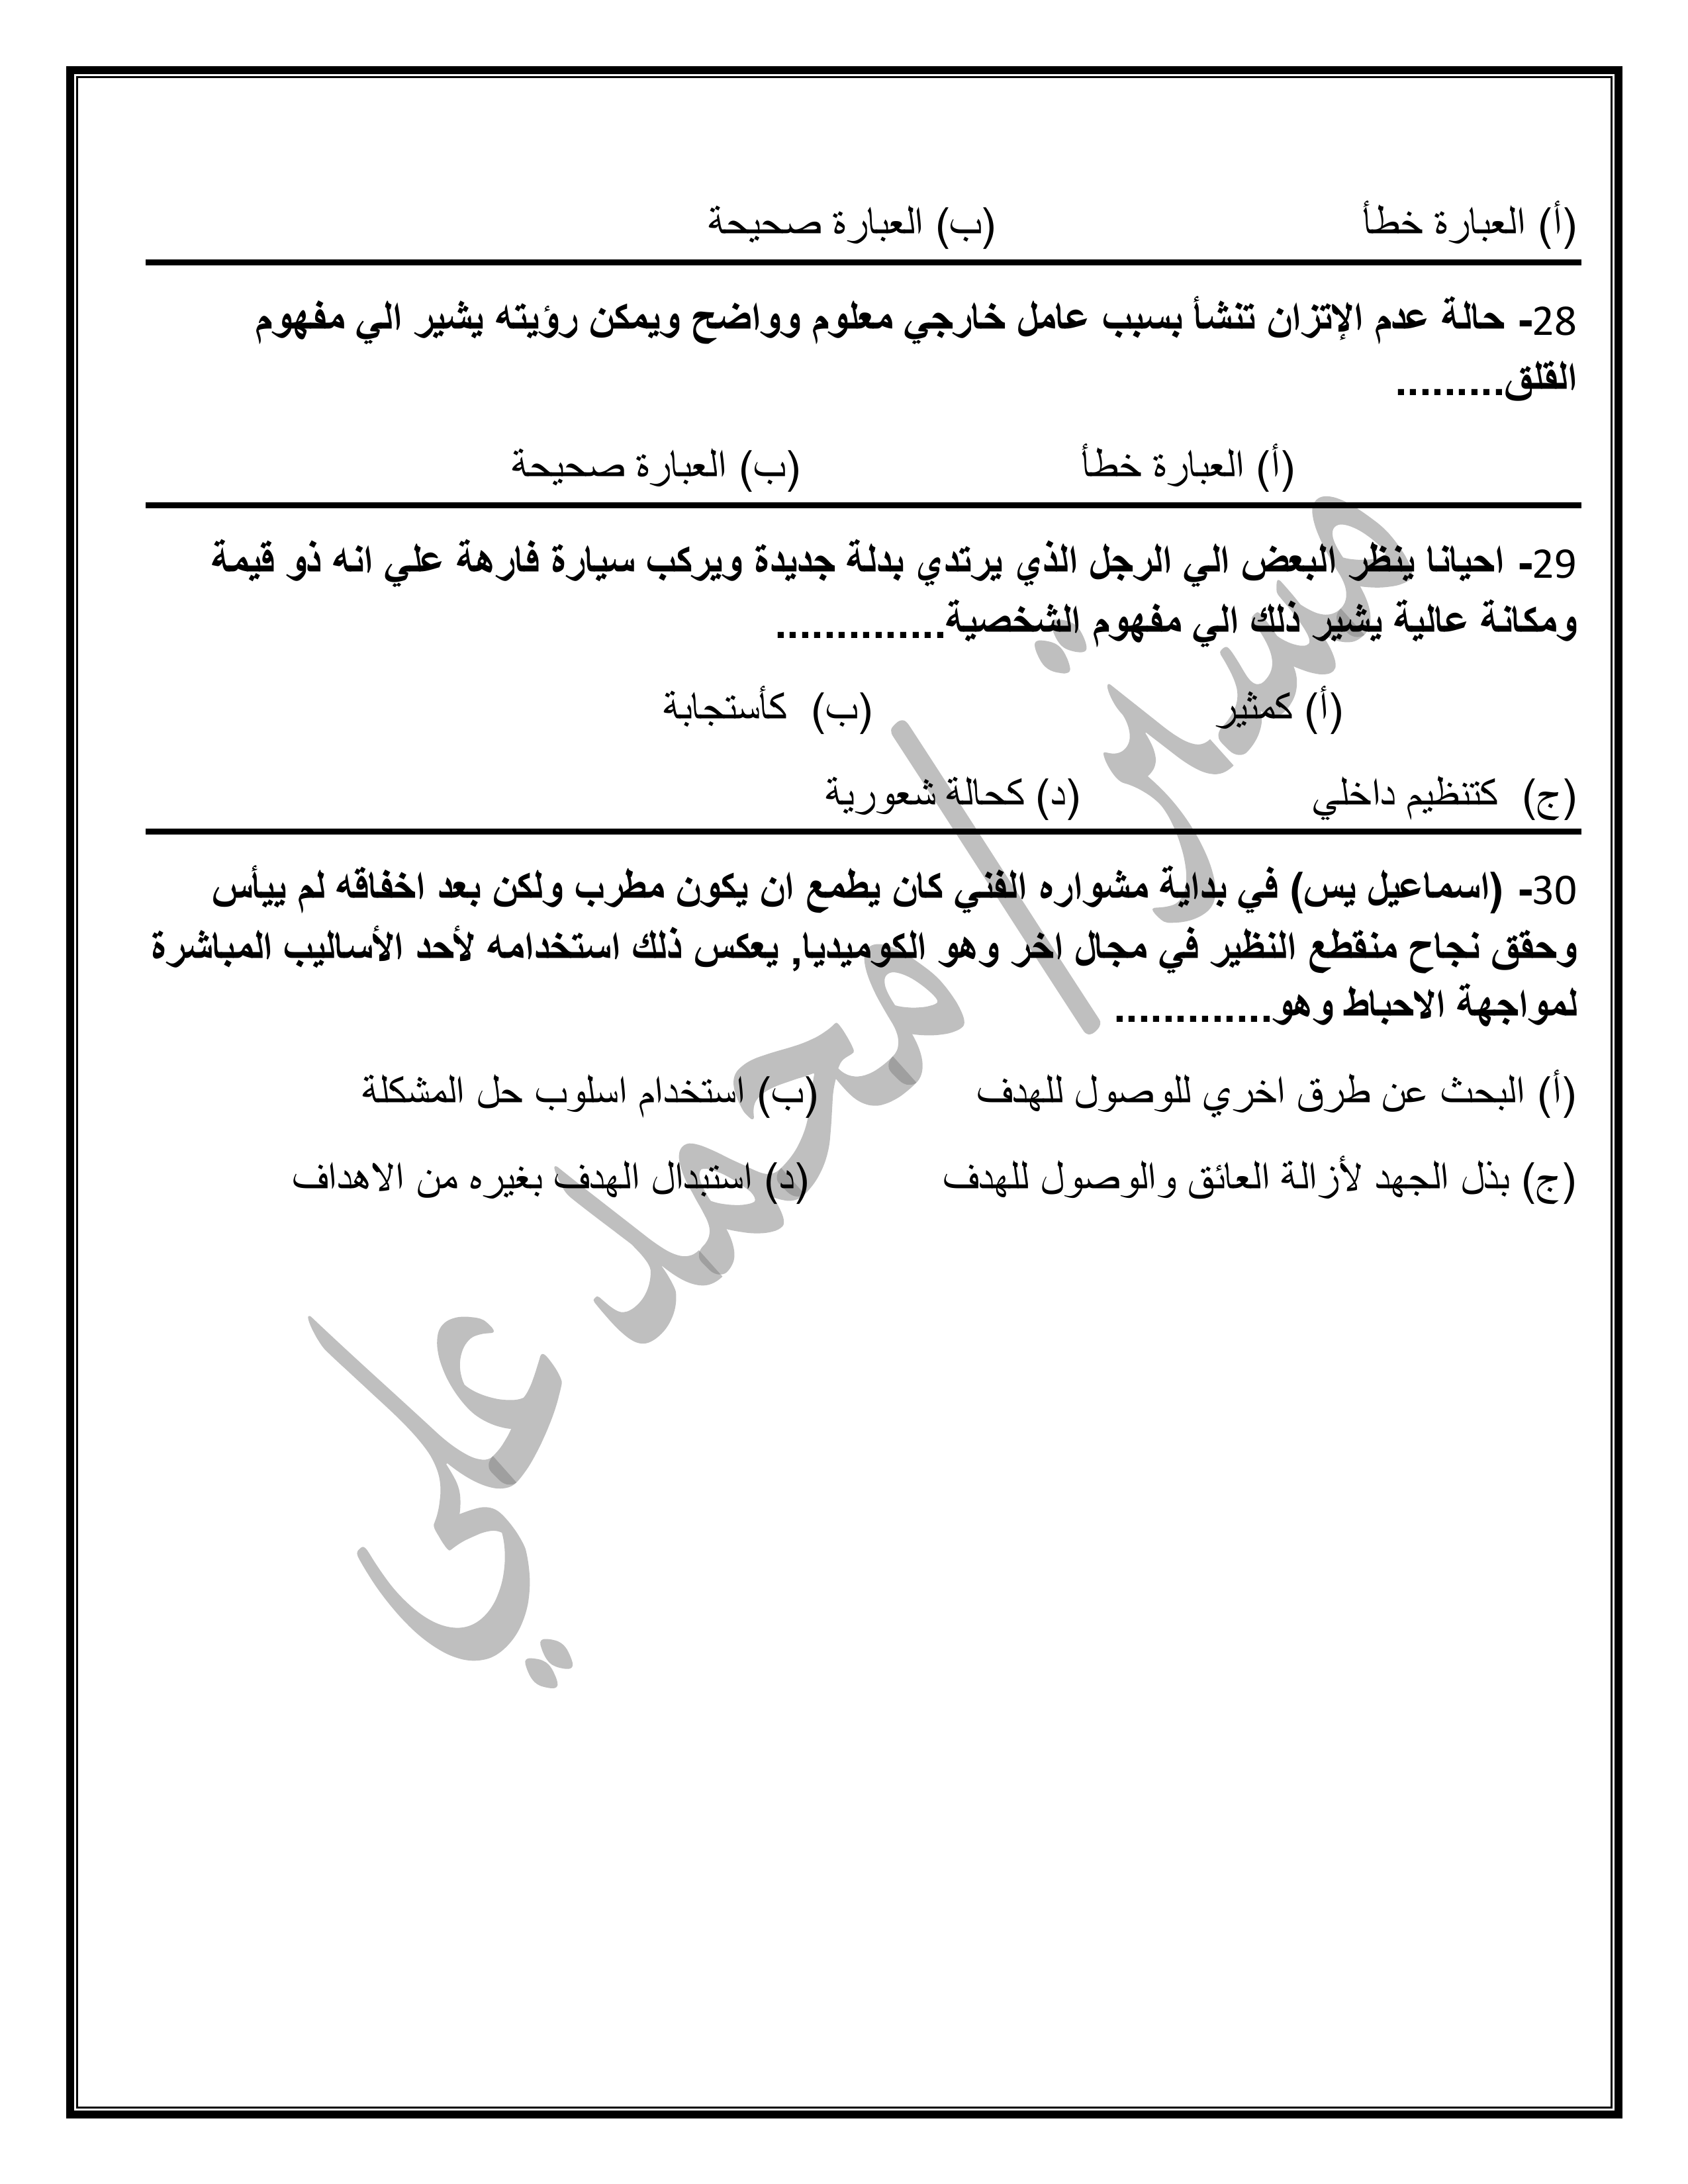 (أ) العبارة خطأ (ب) العبارة صحيحة
28- حالة عدم الإتزان تنشأ بسبب عامل خارجي معلوم وواضح ويمكن رؤيته يشير الي مفهوم
القلق.........
(أ) العبارة خطأ (ب) العبارة صحيحة
29- احيانا ينظر البعض الي الرجل الذي يرتدي بدلة جديدة ويركب سيارة فارهة علي انه ذو قيمة
ومكانة عالية يشير ذلك الي مفهوم الشخصية..............
(أ) كمثير (ب) كأستجابة
(ج) كتنظيم داخلي (د) كحالة شعورية
30- (اسماعيل يس) في بداية مشواره الفني كان يطمع ان يكون مطرب ولكن بعد اخفاقه لم ييأس
وحقق نجاح منقطع النظير في مجال اخر وهو الكوميديا, يعكس ذلك استخدامه لأحد الأساليب المباشرة
لمواجهة الاحباط وهو.............
(أ) البحث عن طرق اخري للوصول للهدف (ب) استخدام اسلوب حل المشكلة
(ج) بذل الجهد لأزالة العائق والوصول للهدف (د) استبدال الهدف بغيره من الاهداف
مستر/محمد علي